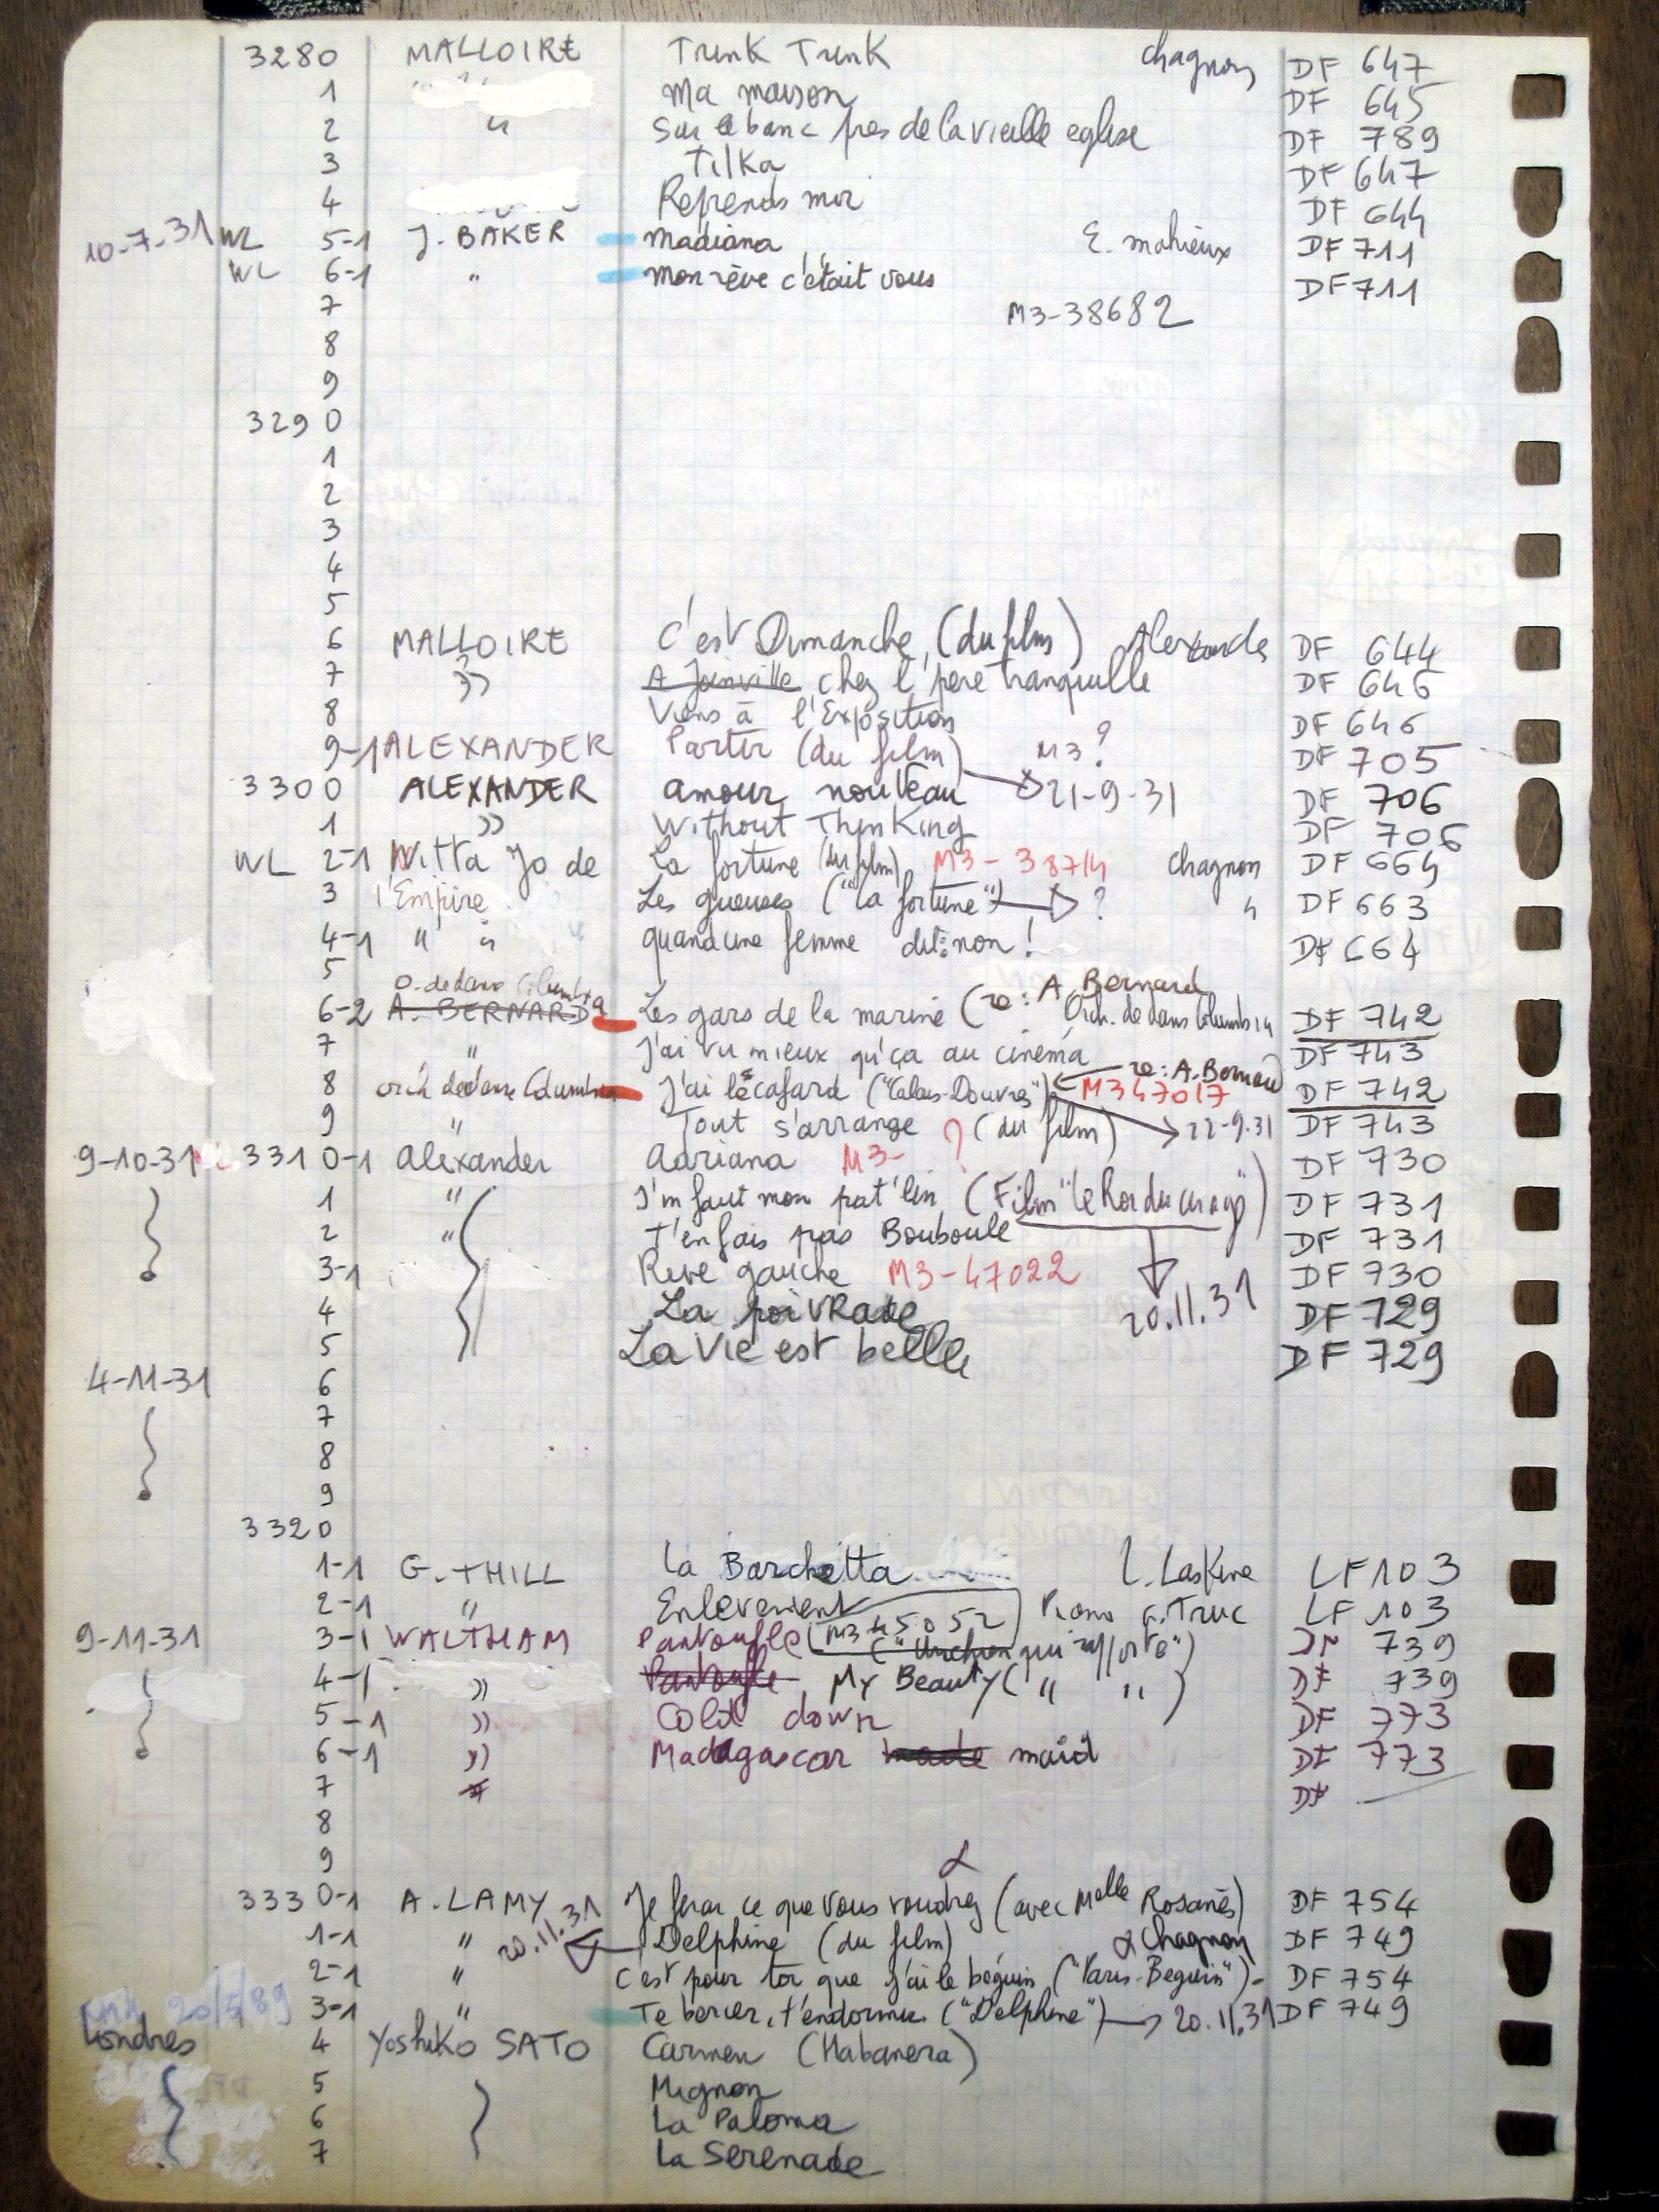 3280 MALLOIRE Trunk Trunk Chagnon DF 647
1 Ma maison DF 645
2 " Sur le banc pres de la vieille eglise DF 789
3 Tilka DF 647
4 Reprends moi DF 644
10-7-31 WL 5-1 J. BAKER Madiana E. Mahieux DF 711
WL 6-1 " Mon rêve c'était vous DF 711
7 M3-38682
8
9
3290
1
2
3
4
5
6 MALLOIRE C'est Dimanche (du film) DF 644
7 " A Joinville chez l'pere tranquille DF 645
8 Viens à l'Exposition DF 646
9-1 ALEXANDER Partir (du film) M3 ? DF 705
3300 ALEXANDER amour nouveau 21-9-31 DF 706
1 " Without Thinking DF 706
WL 2-1 Nitta Jo de La fortune (du film) M3-38714 Chagnon DF 664
3 l'Empire Les gueuses ("la fortune") → ? " DF 663
4-1 " " quand une femme dit: non! DF 664
5
O. de danse Columbia A. Bernard
6-2 A. BERNARD Les gars de la marine (re: Orch. de danse Columbia DF 742
7 " J'ai vu mieux qu'ça au cinéma DF 743
8 orch de danse Columbia J'ai le cafard ("Calais-Douvres") ← re: A. Bernard M3 47017 DF 742
9 " Tout s'arrange ? (du film) → 22-9-31 DF 743
9-10-31 3310-1 Alexander Adriana M3- DF 730
1 " J'm faut mon pat'lin (Film "le Roi du cirage") DF 731
2 " T'en fais pas Bouboule DF 731
3-1 Rive gauche M3-47022 DF 730
4 La poivRade 20.11.31 DF 729
5 La Vie est belle DF 729
4-11-31 6
7
8
9
3320
1-1 G. THILL La Barchetta L. Laskine LF 103
2-1 " Enlevement Piano G. Truc LF 103
9-11-31 3-1 WALTHAM Pantoufle M3 45052 (" qui rapporte") DF 739
4-1 " Pantoufle My Beauty (" ") DF 739
5-1 " Cold down DF 773
6-1 " Madagascar made maid DF 773
7 DF —
8
9
3330-1 A. LAMY Je ferai ce que vous voudrez (avec Melle Rosanès) DF 754
1-1 " 20.11.31 ← Delphine (du film) & Chagnon DF 749
2-1 " C'est pour toi que j'ai le béguin ("Paris-Beguin") - DF 754
20/5/89 3-1 " Te bercer, t'endormir ("Delphine") → 20.11.31 DF 749
Londres 4 Yoshiko SATO Carmen (Habanera)
5 Mignon
6 La Paloma
7 La Serenade